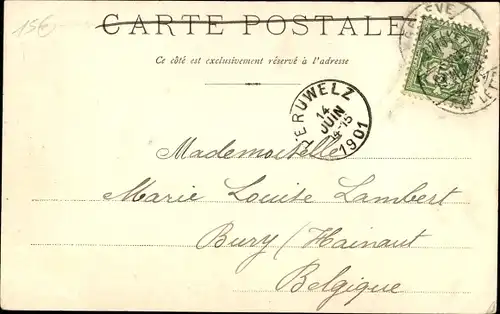 15€
CARTE POSTALE
Ce côté est exclusivement réservé à l'adresse
PERUWELZ
14
JUIN
14-15
1901
Mademoiselle
Marie Louise Lambert
Bury / Hainaut
Belgique